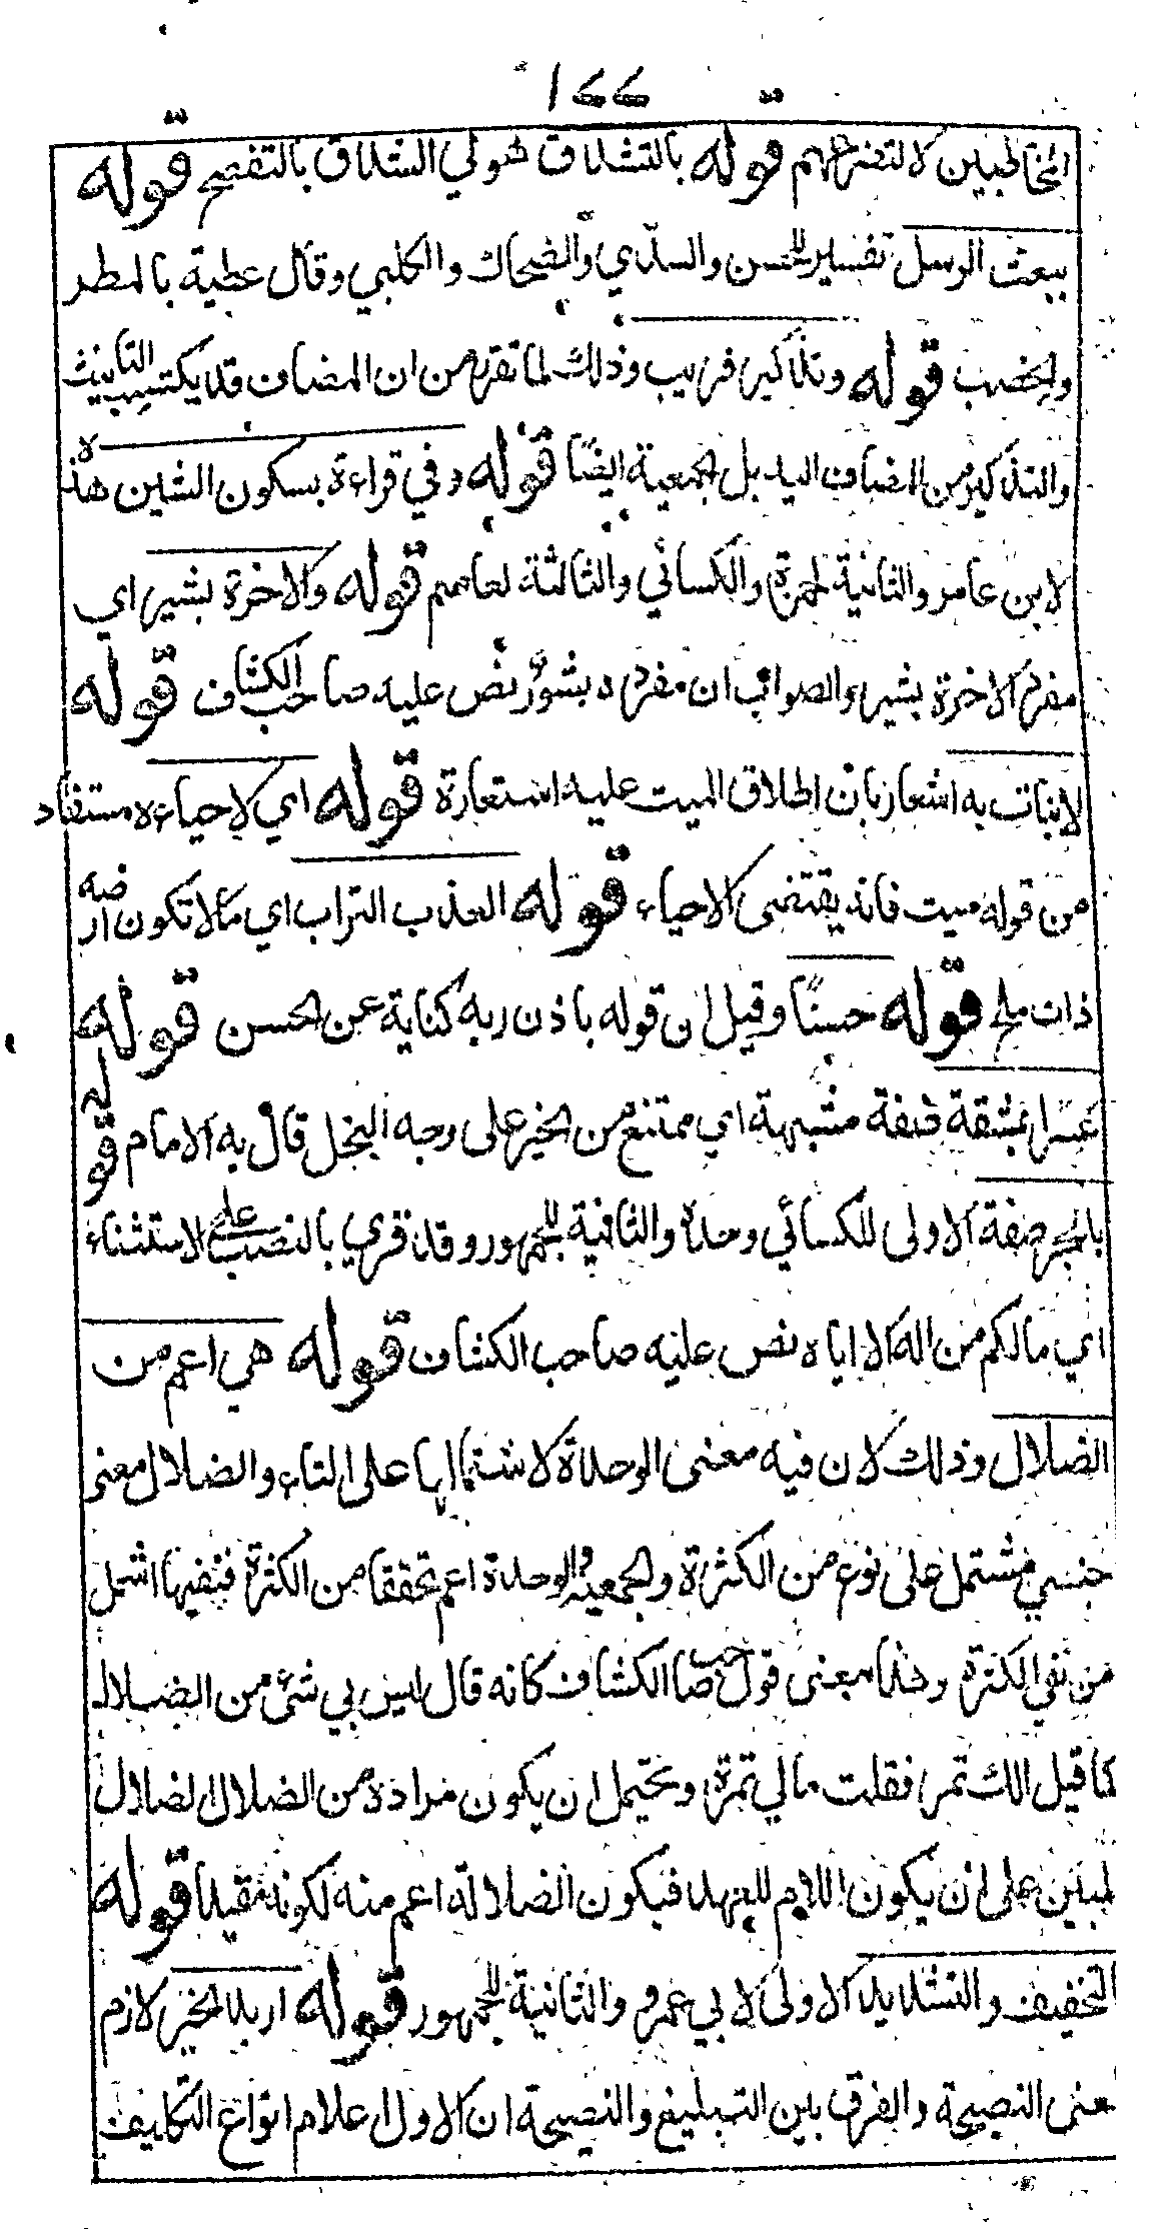 ١٤٤
المخاطبين لا لتضرعهم قوله بالتشداق هو لي الشداق بالتفصح قوله
ببعث الرسل تفسير للحسن والسدّي والضحاك والكلبي وقال عطية بالمطر
والخصب قوله وتذكير قريب وذلك لما تقرر من ان المضاف قد يكتسب التانيث
والتذكير من المضاف اليه بل الجمعية ايضًا قوله وفي قراءة بسكون الشين هذه
لابن عامر والثانية لحمزة والكسائي والثالثة لعاصم قوله والاخرة بشير اي
مفرد الاخرة بشير والصواب ان مفرده بشورٌ نص عليه صاحب الكشاف قوله
لانبات به اشعار بان اطلاق الميت عليه استعارة قوله اي لاحياءه مستفاد
من قوله ميت فانه يقتضى الاحياء قوله العذب التراب اي مالا تكون ارضه
ذات ملح قوله حسنًا وقيل ان قوله باذن ربه كناية عن الحسن قوله
عسرا بمشقة صفة مشبهة اي ممتنع من الخير على وجه البخل قال به الامام قوله
بالجر صفة الاولى للكسائي وحده والثانية للجمهور وقد قري بالنصب على الاستثناء
اي مالكم من اله الا اياه نص عليه صاحب الكشاف قوله هي اعم من
الضلال وذلك لان فيه معنى الوحدة لاشتمالها على التاء والضلال معنى
جنسي مشتمل على نوع من الكثرة والجمعية والوحدة اعم تحققا من الكثرة فنفيها اشمل
من نفي الكثرة وهذا معنى قول صاحب الكشاف كانه قال ليس بي شئ من الضلال
كما قيل الك تمر فقلت مالي تمرة ويحتمل ان يكون مراده من الضلال الضلال
لمبين على ان يكون اللام للعهد فيكون الضلالة اعم منه لكونه مقيدا قوله
التخفيف والتشديد الاولى لابي عمرو والثانية للجمهور قوله اريد الخير لازم
لمعنى النصيحة والفرق بين التبليغ والنصيحة ان الاول اعلام انواع التكليف